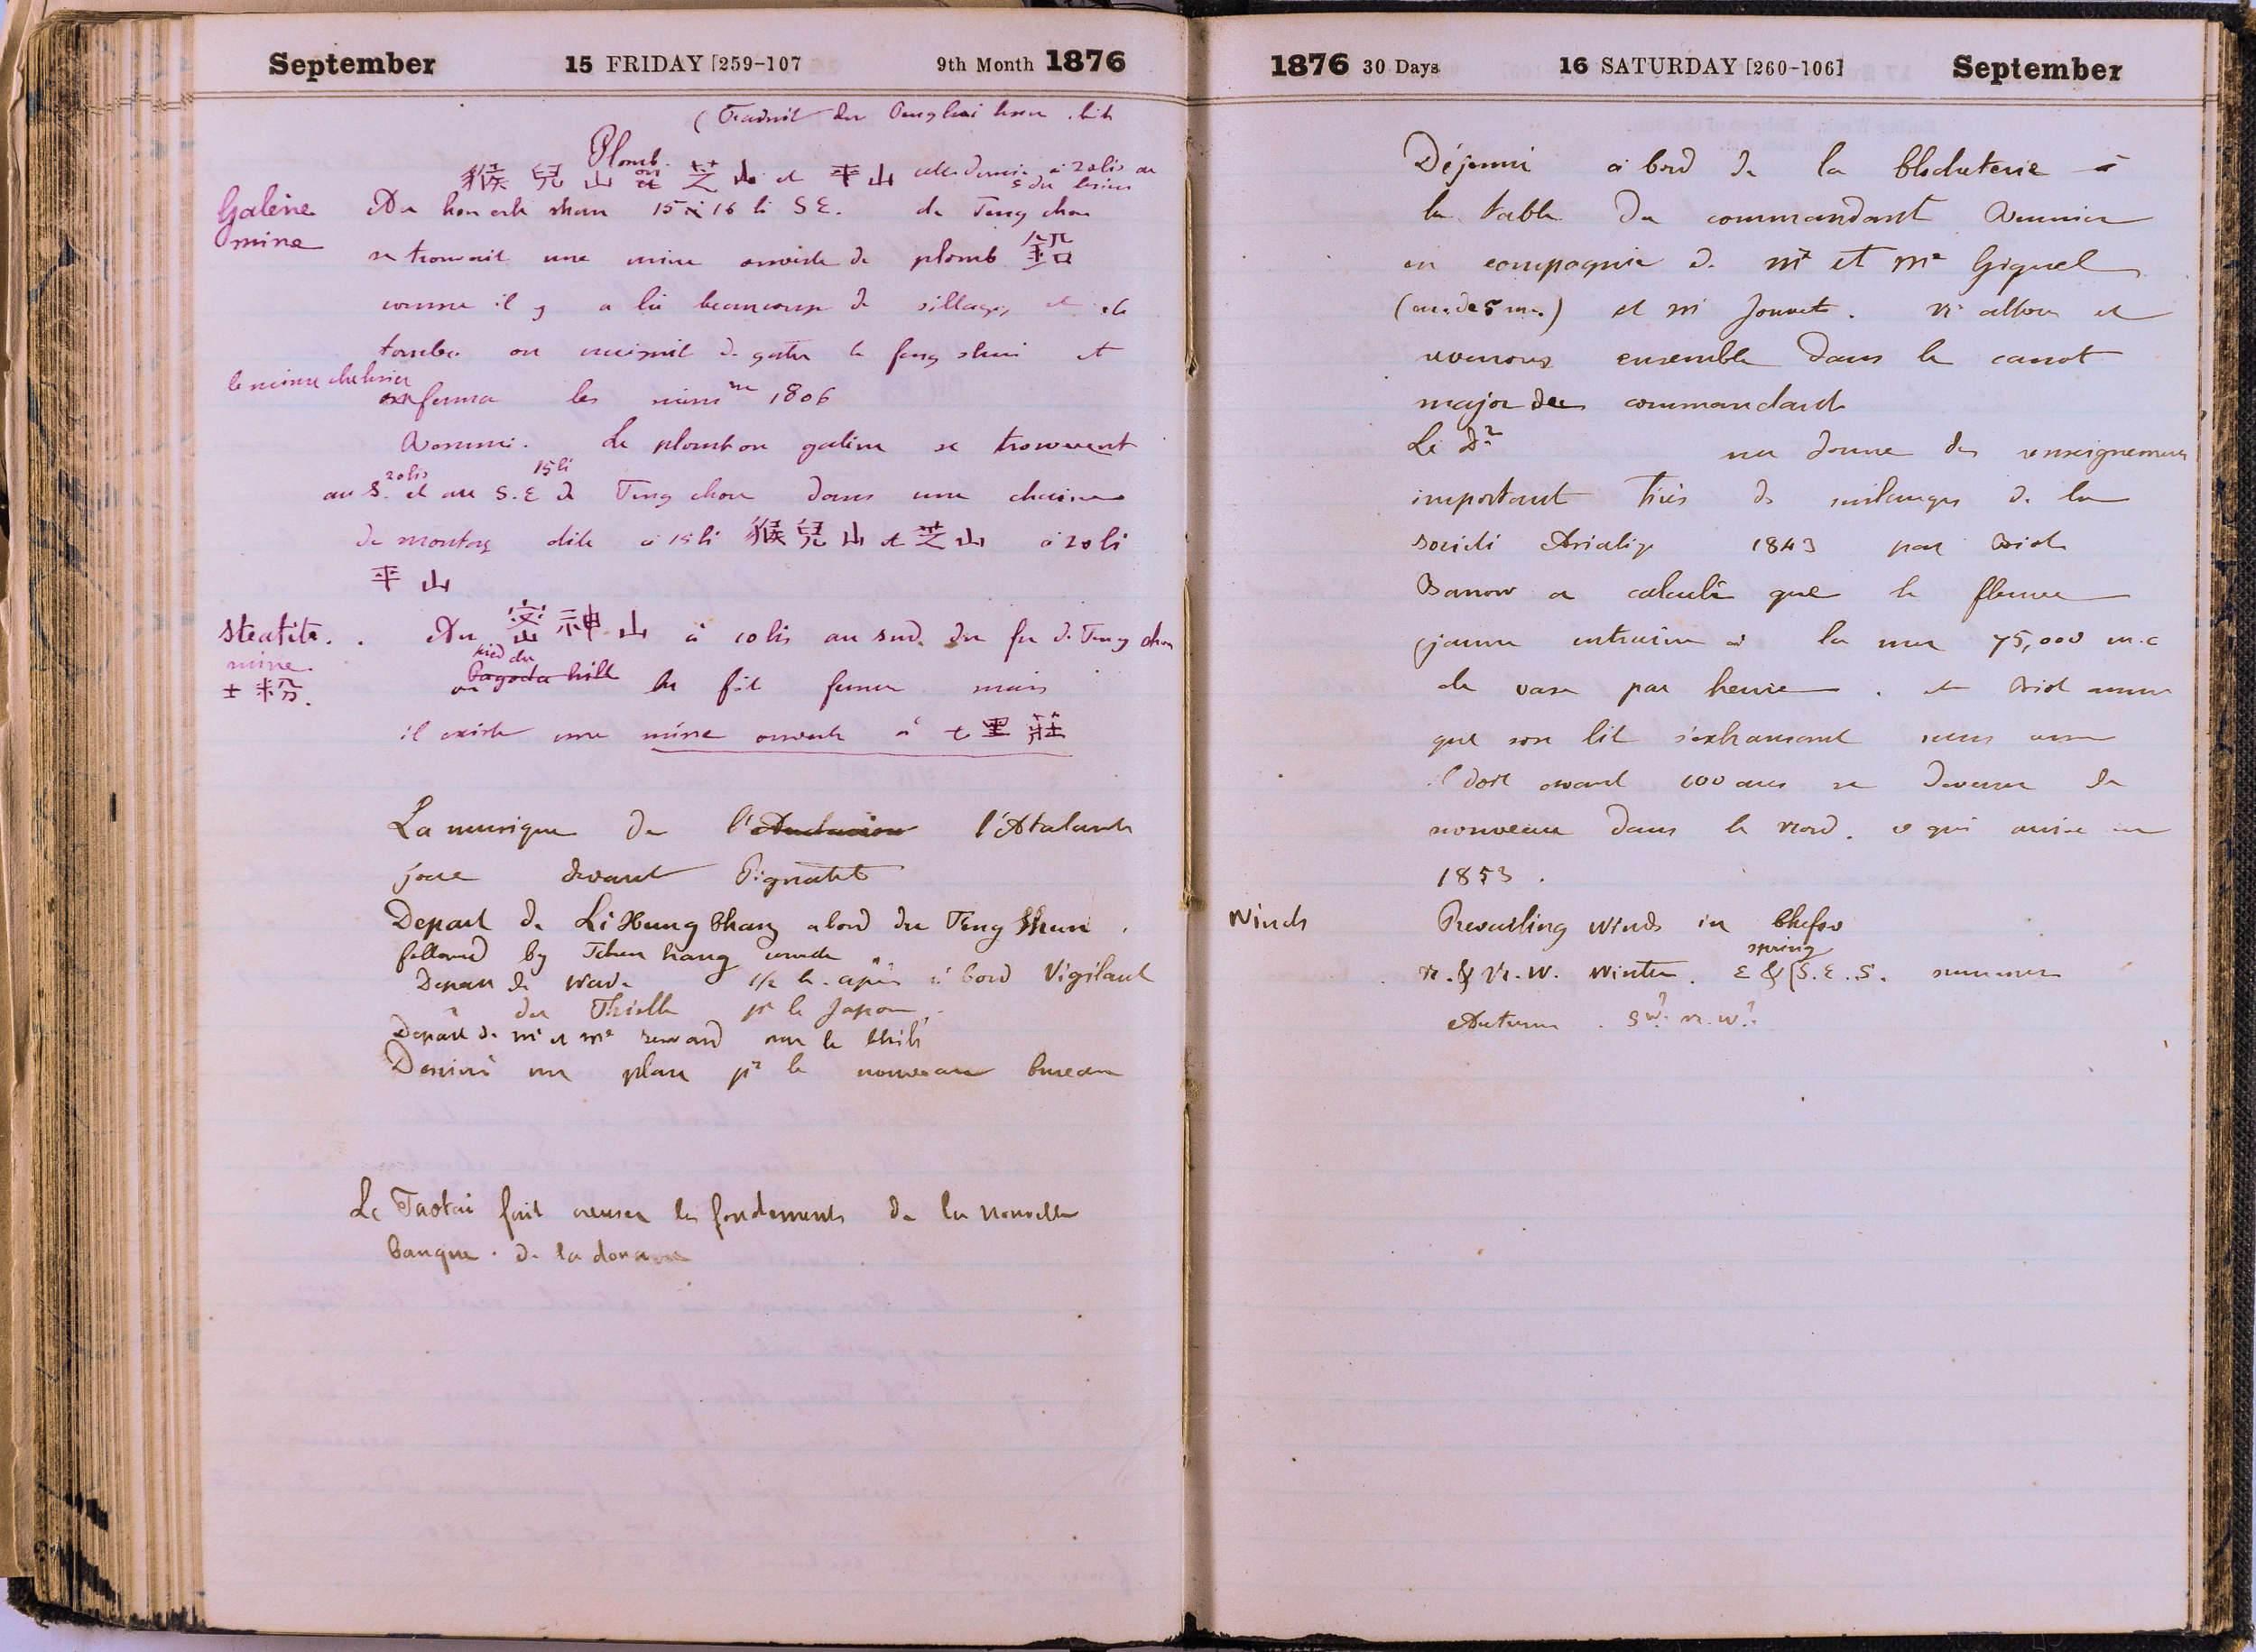 September 15 FRIDAY [259-107 9th Month 1876
(Traduit du Peng hai hien
Plomb.
猴兒山 ou 芝山 et 平山 cette dernière à 20 lis au
S du hsien
Galène mine
Au hou erh shan 15 à 16 li SE. de Teng chou
se trouvait une mine ouverte de plomb 鉛
comme il y a là beaucoup de villages et de
tombes on craignit de gater le feng shui et
ferma les mines en 1806
Le plomb ou galène se trouvent
au S. 20 lis et au S.E 15 li de Teng chou dans une chaine
de montag dite à 15 li 猴兒山 et 芝山 à 20 li
平山
Steatite.
mine
土粉.
Au 密神山 à 10 lis au sud du fu de Teng chou
au pied du Pagoda hill fut fermée mais
il existe une mine ouverte à 七里莊
La musique de l'Atalante
joue devant Pignatel
Depart de Li Hung Chang a bord du Teng Shun.
followed by
Depart de Wade 1/2 h. après à bord Vigilant
" du Thistle pr le Japon
Depart de Mr et Me Seward sur le
Dessiné un plan pr le nouveau bureau
Le Taotai fait creuser les fondements de la nouvelle
banque. de la douane
1876 30 Days 16 SATURDAY [260-106] September
Déjeuné à bord de la Clocheterie à
la table du commandant
en compagnie de Mr et Me Giquel
et Mr Jouvet. Ns allons et
revenons ensemble dans le canot
major du commandant
Le Dr me donne des renseignements
important tirés des mélanges de la
société Asiatiq 1843 par Biot
Barrow a calculé que le fleuve
jaune entraine à la mer 75,000 m.c
de vase par heure. et Biot
que son lit s'exhaussant
il doit avant 100 ans se deverser de
nouveau dans le Nord. ce qui arrive en
1853.
Winds
Prevailing winds in Chefoo
N. & N.W. winter. E & S.E.S. spring summer
Autumn. SW? N.W?